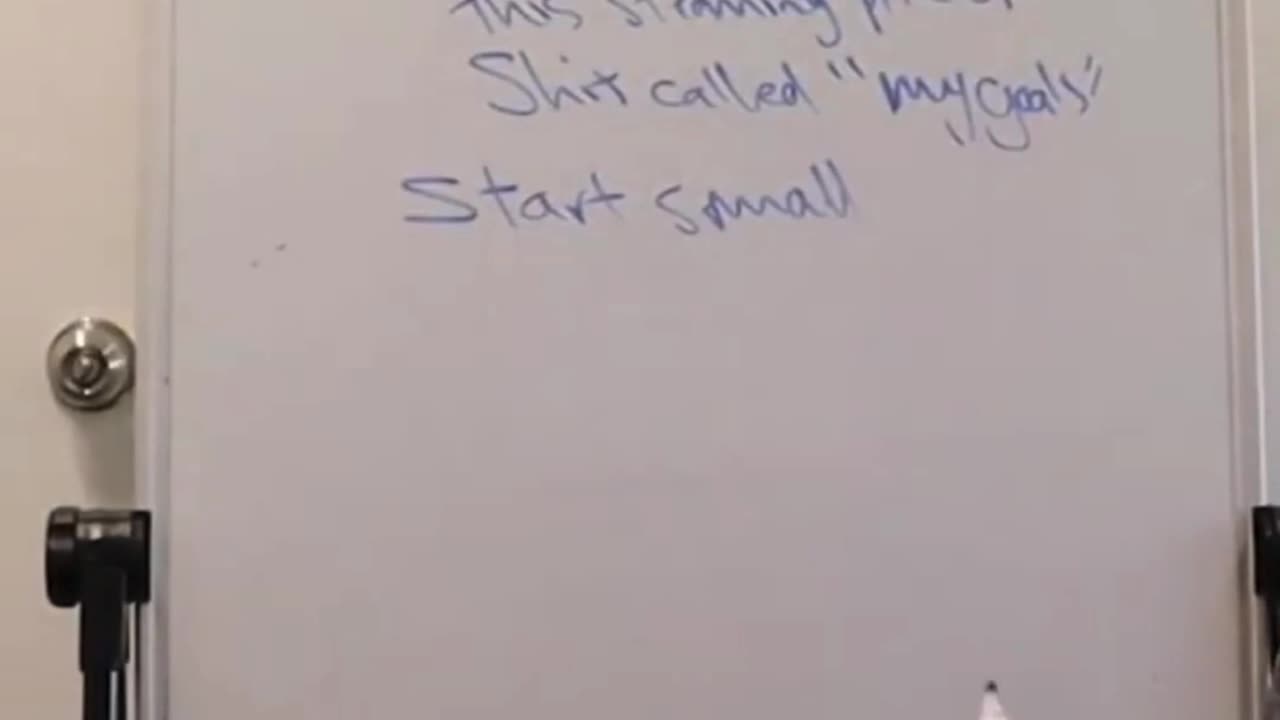 this steaming
Shit called "my goals"
Start small